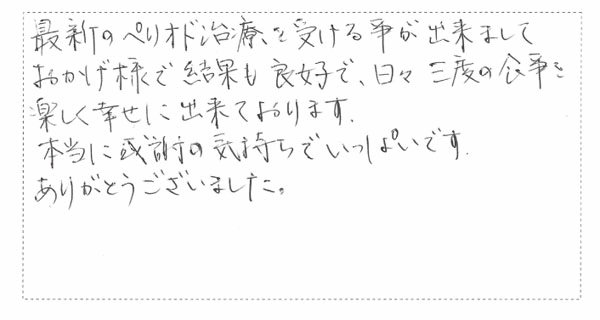 最新のペリオド治療を受ける事が出来まして
おかげ様で結果も良好で、日々三度の食事を
楽しく幸せに出来ております.
本当に感謝の気持ちでいっぱいです.
ありがとうございました。